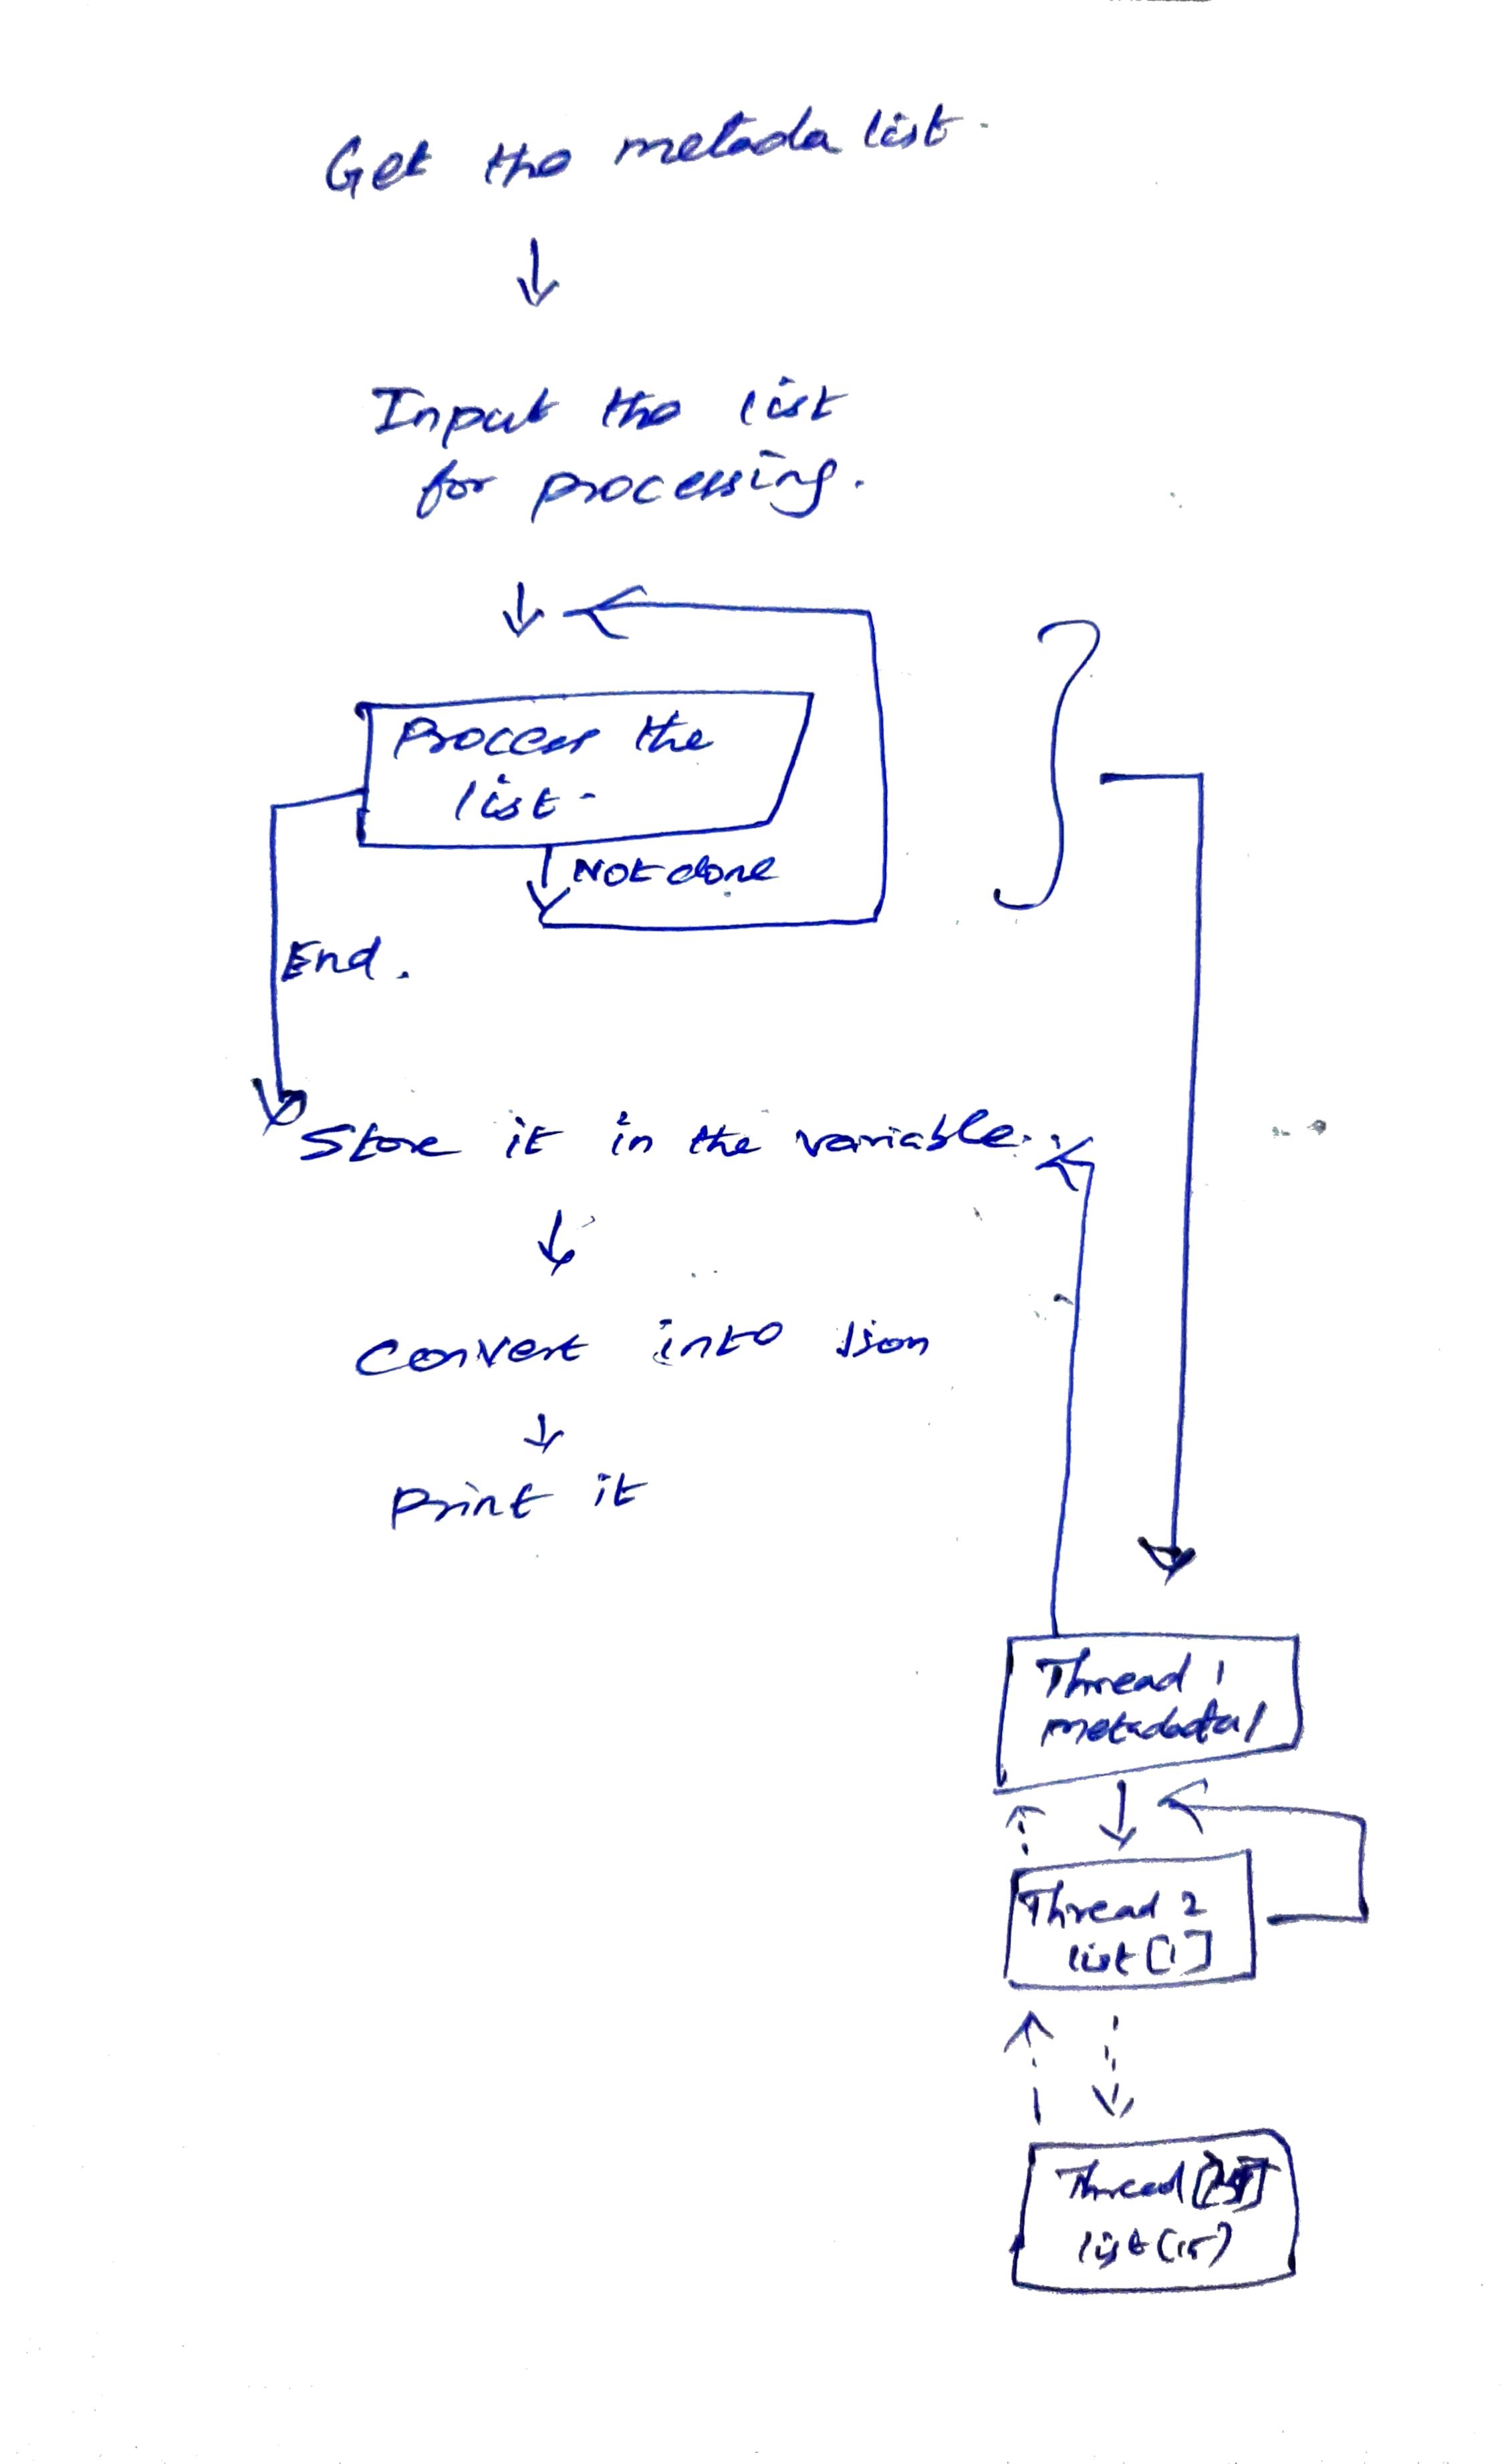 Get the metada list.
Input the list
for processing.
Process the
list.
Not done
End.
Store it in the variable.
Convert into Json
Print it
Thread 1
metadata/
Thread 2
list [1]
Thread
list (15)